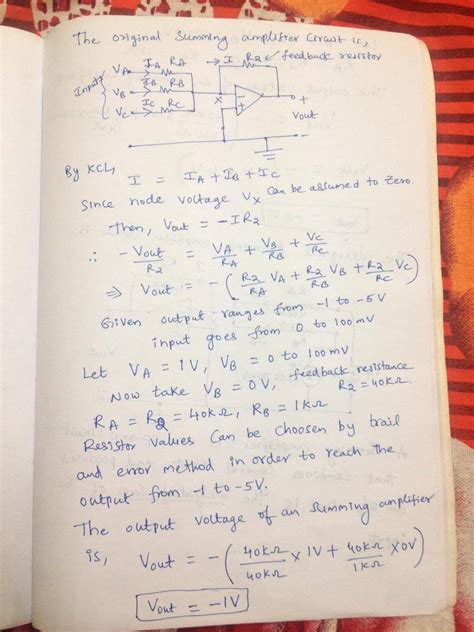 The original Summing amplifier Circuit is,
→ I R2 ← feedback resistor
Input
VA IA RA
VB IB RB
VC IC RC
X
- +
+ Vout -
By KCL,
I = IA + IB + IC
Since node voltage Vx Can be assumed to Zero.
Then, Vout = -IR2
∴ -Vout/R2 = VA/RA + VB/RB + VC/RC
⇒ Vout = -(R2/RA VA + R2/RB VB + R2/RC VC)
Given output ranges from -1 to -5V
input goes from 0 to 100mV
Let VA = 1V, VB = 0 to 100mV
Now take VB = 0V, feedback resistance
R2 = 40KΩ
RA = R2 = 40KΩ, RB = 1KΩ
Resistor values Can be choosen by trail
and error method in order to reach the
output from -1 to -5V.
The output voltage of an Summing amplifier
is, Vout = -(40KΩ/40KΩ × 1V + 40KΩ/1KΩ × 0V)
Vout = -1V